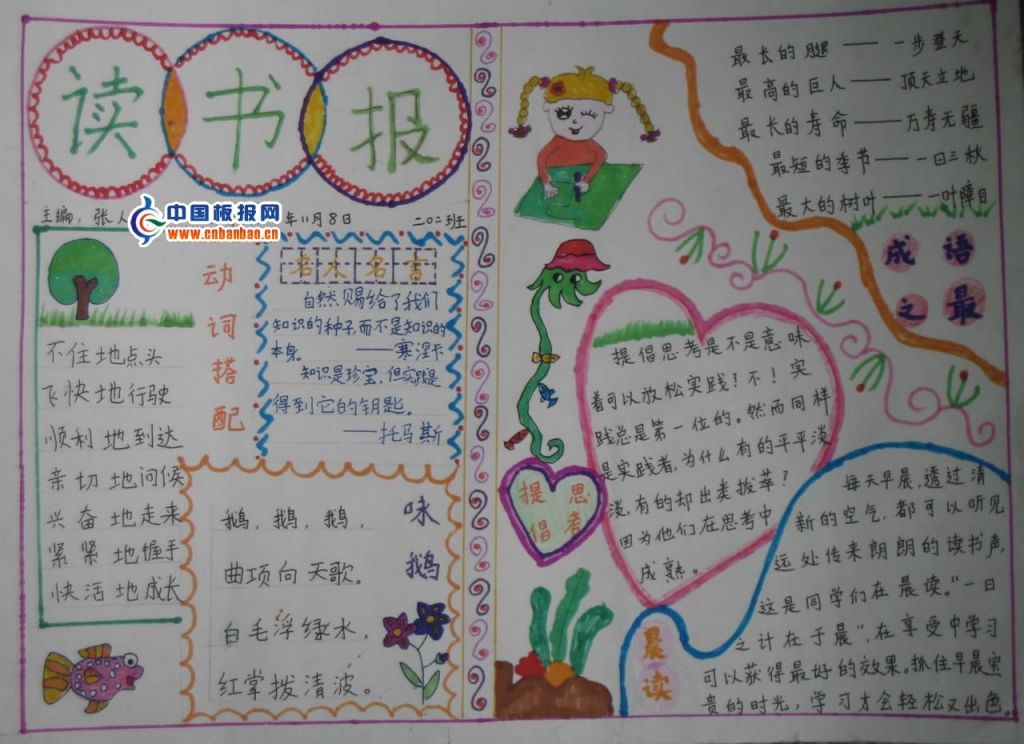 读书报
主编：张人
中国板报网
www.cnbanbao.cn
年11月8日
二〇二班
动词搭配
不住地点头
飞快地行驶
顺利地到达
亲切地问候
兴奋地走来
紧紧地握手
快活地成长
名人名言
自然赐给了我们
知识的种子,而不是知识的
本身。——塞涅卡
知识是珍宝，但实践是
得到它的钥匙。
——托马斯
咏鹅
鹅，鹅，鹅，
曲项向天歌。
白毛浮绿水，
红掌拨清波。
最长的腿——一步登天
最高的巨人——顶天立地
最长的寿命——万寿无疆
最短的季节——一日三秋
最大的树叶——一叶障目
成语之最
提倡思考
提倡思考是不是意味
着可以放松实践？不！实
践总是第一位的。然而同样
是实践者,为什么有的平平淡
淡,有的却出类拔萃？
因为他们在思考中
成熟。
晨读
每天早晨,透过清
新的空气,都可以听见
远处传来朗朗的读书声,
这是同学们在晨读。“一日
之计在于晨”,在享受中学习
可以获得最好的效果。抓住早晨宝
贵的时光，学习才会轻松又出色。